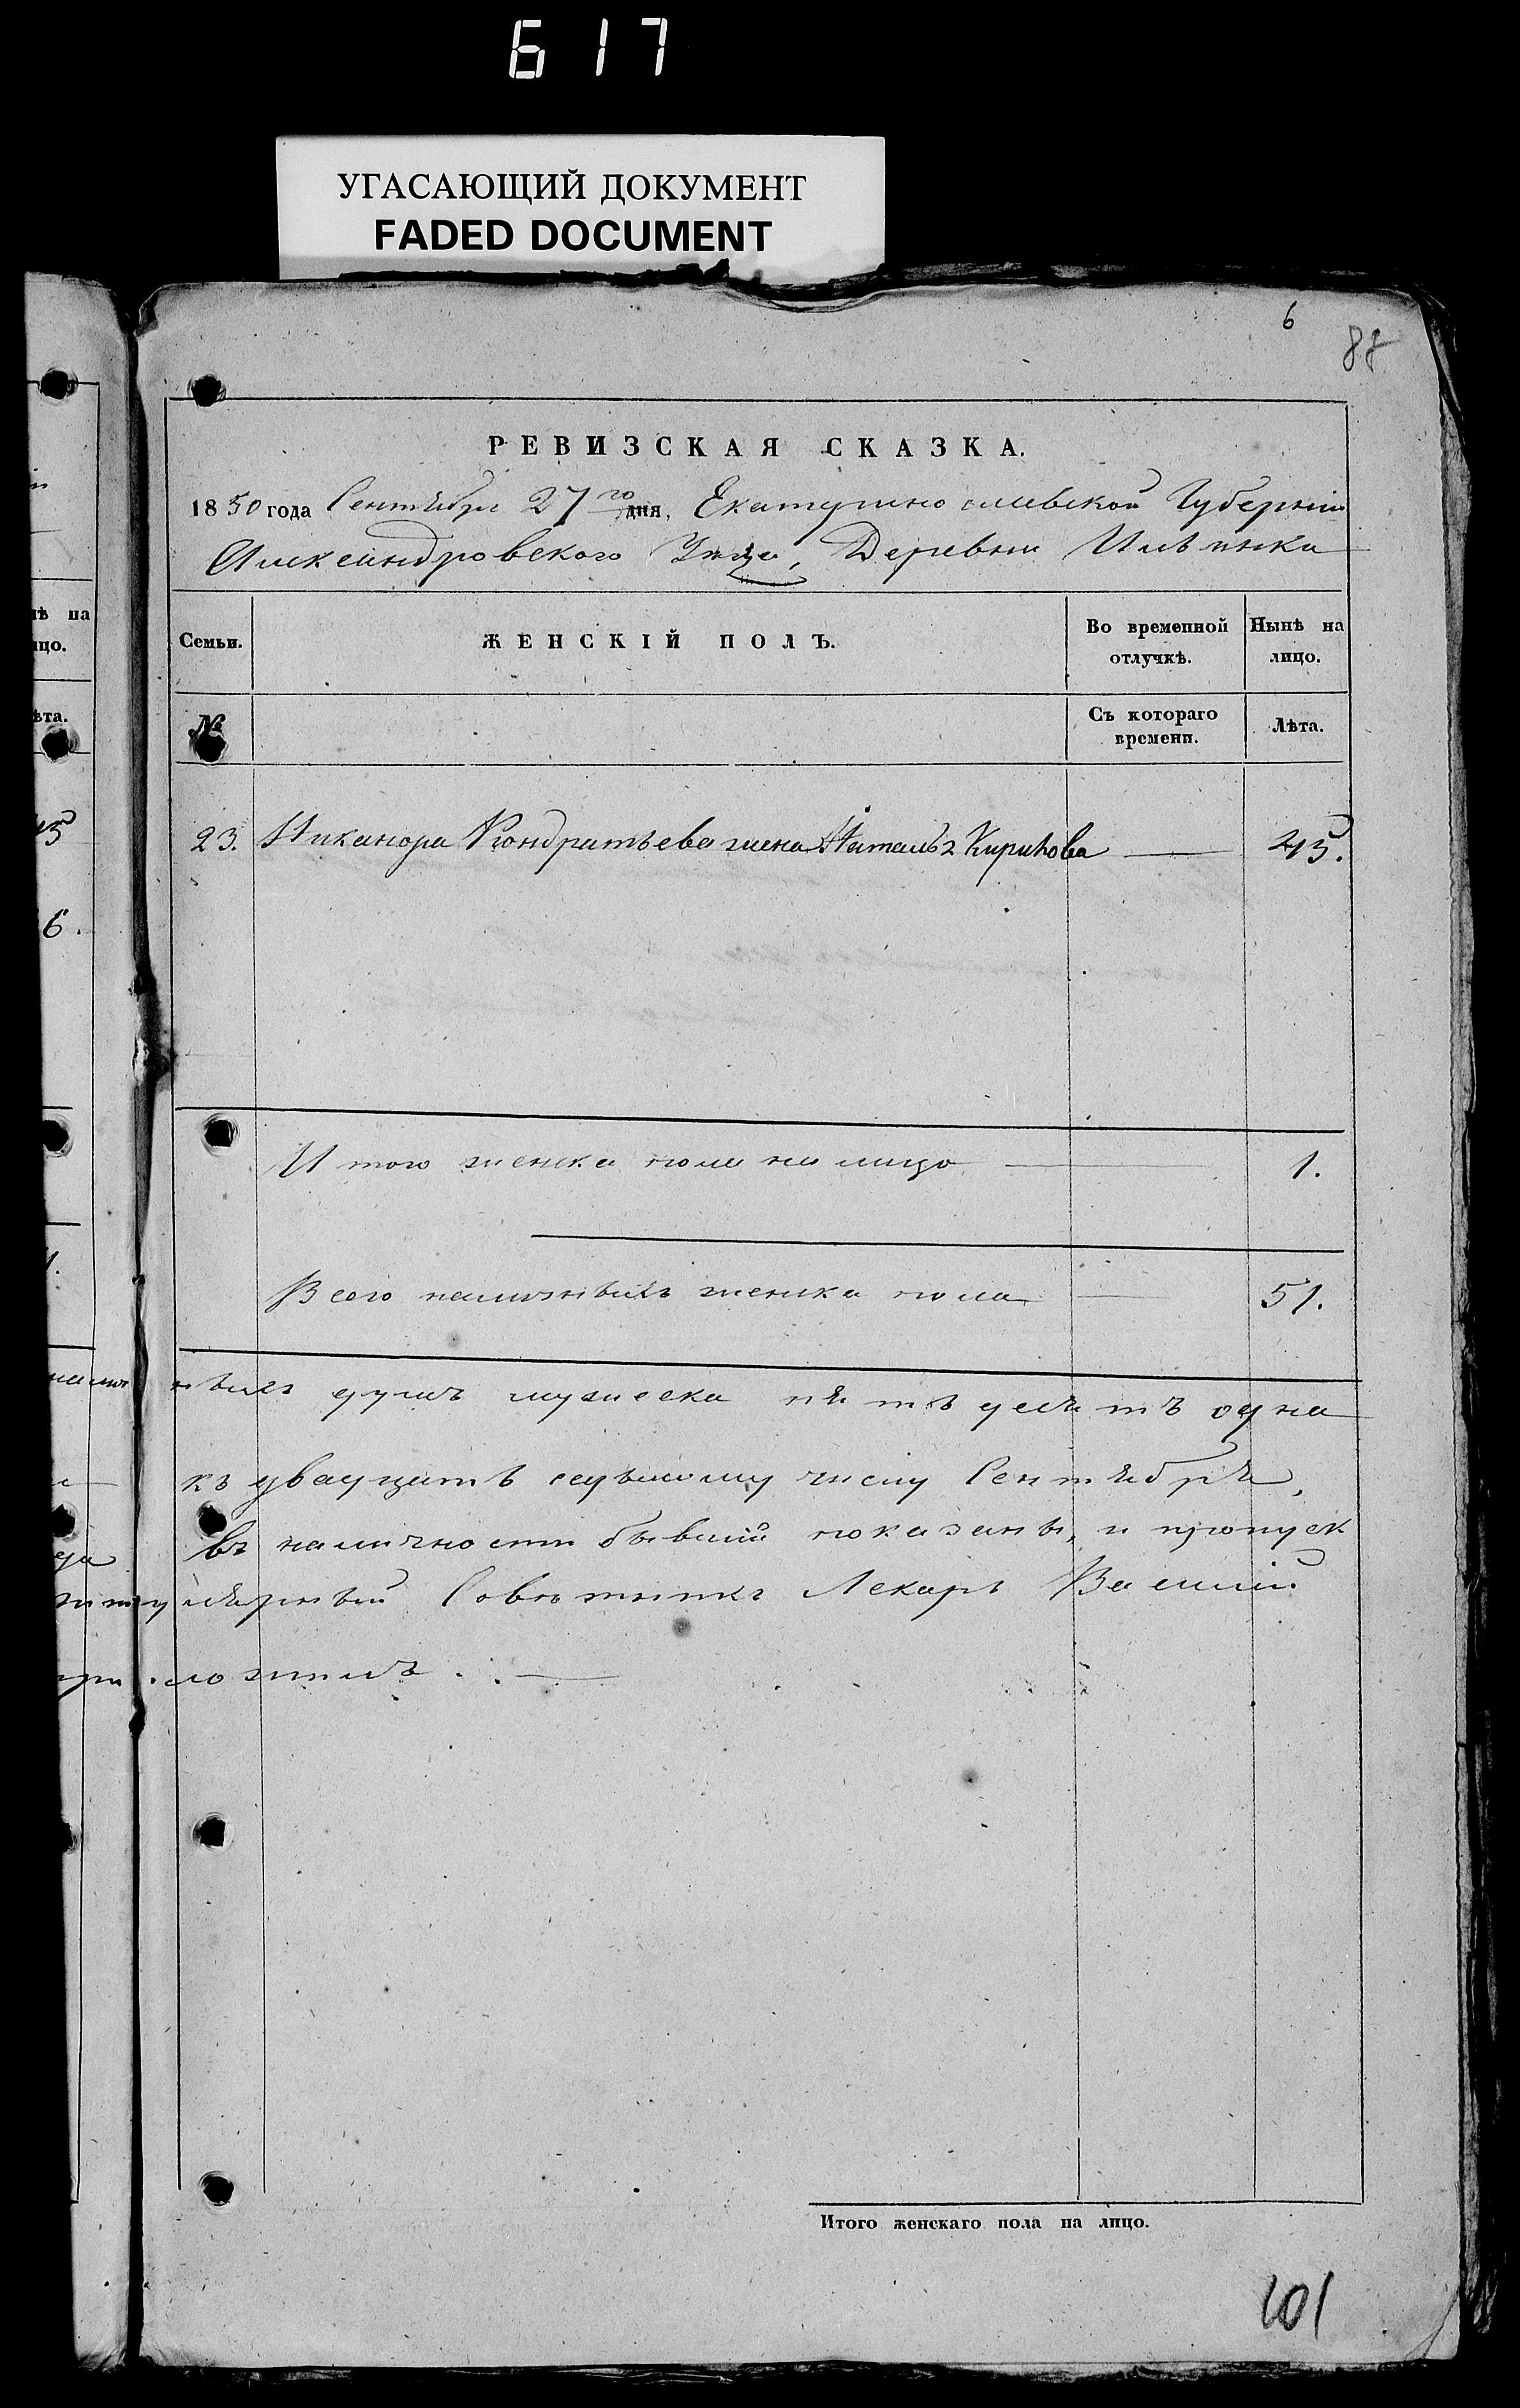 617
УГАСАЮЩИЙ ДОКУМЕНТ
FADED DOCUMENT
6
88
РЕВИЗСКАЯ СКАЗКА.
1850 года Сентября 27го дня, Екатеринославской Губерніи
Александровского Уезда, Деревни Ильинки
нѣ на
лицо.
Семьи.
ЖЕНСКІЙ ПОЛЪ.
Во временной отлучкѣ.
Ныне на лицо.
ѣта.
№
Съ котораго времени.
Лѣта.
23. Никанора Кондратьева жена Наталья Кирикова — 45.
6.
Итого женска пола на лицо — 1.
Всего наличныхъ женска пола — 51.
налич ныхъ душъ мужеска пятьдесятъ одна
къ двадцать седьмому числу Сентября,
въ наличности бывшій показаны, и пропуск
Совѣтникъ Лекарь Василій
приложилъ.
Итого женскаго пола на лицо.
101